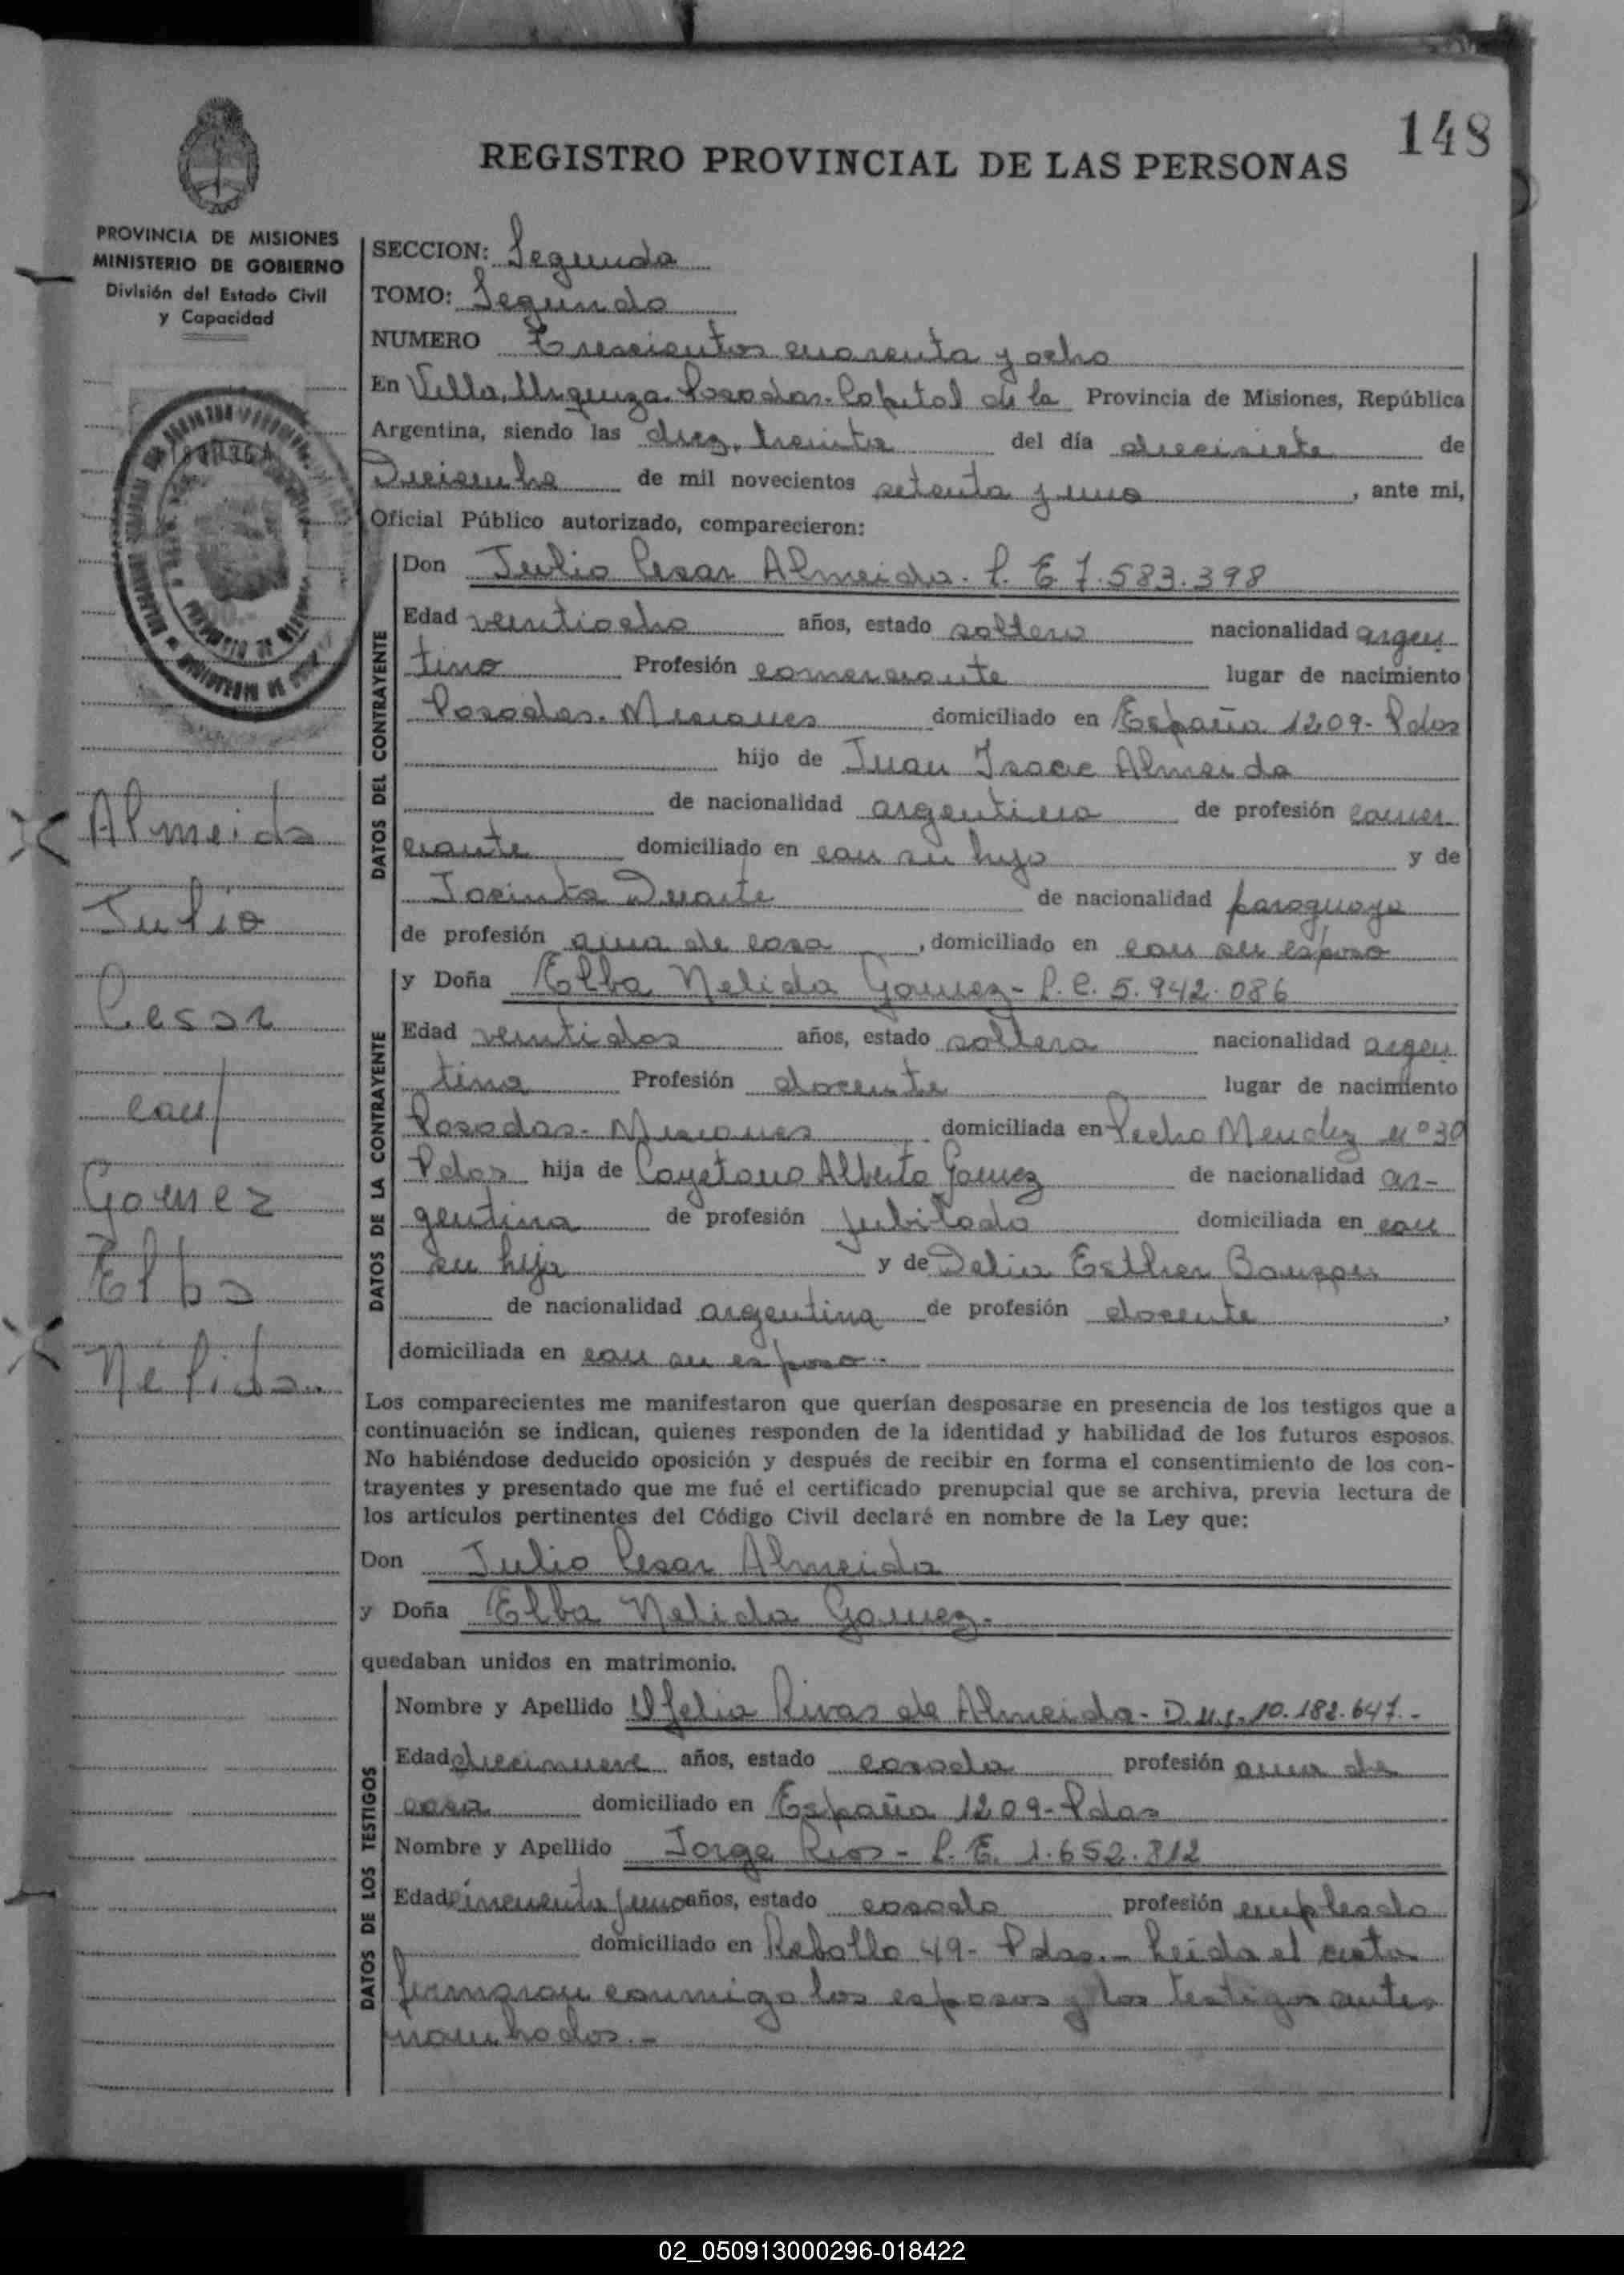 148
REGISTRO PROVINCIAL DE LAS PERSONAS
PROVINCIA DE MISIONES
MINISTERIO DE GOBIERNO
División del Estado Civil
y Capacidad
SECCION: Segunda
TOMO: Segundo
NUMERO Trescientos cuarenta y ocho
En Villa Urquiza. Posadas. Capital de la Provincia de Misiones, República
Argentina, siendo las diez, treinta del día diecisiete de
Diciembre de mil novecientos setenta y uno, ante mi,
Oficial Público autorizado, comparecieron:
DATOS DEL CONTRAYENTE
Don Julio Cesar Almeida. L. E. 7.583.398
Edad veintiocho años, estado soltero nacionalidad argen
tino Profesión comerciante lugar de nacimiento
Posadas. Misiones domiciliado en España 1209- Pdas
hijo de Juan Isaac Almeida
de nacionalidad argentina de profesión comer
ciante domiciliado en con su hijo y de
Jacinta Duarte de nacionalidad paraguaya
de profesión ama de casa, domiciliado en con su esposo
DATOS DE LA CONTRAYENTE
y Doña Elba Nelida Gomez- L.C. 5.942.086
Edad veintidos años, estado soltera nacionalidad argen
tina Profesión docente lugar de nacimiento
Posadas. Misiones domiciliada en Pedro Mendez nº 30
Pdas hija de Cayetano Alberto Gomez de nacionalidad ar-
gentina de profesión jubilado domiciliada en con
su hija y de Delia Esther
de nacionalidad argentina de profesión docente,
domiciliada en con su esposo.-
Los comparecientes me manifestaron que querían desposarse en presencia de los testigos que a
continuación se indican, quienes responden de la identidad y habilidad de los futuros esposos.
No habiéndose deducido oposición y después de recibir en forma el consentimiento de los con-
trayentes y presentado que me fué el certificado prenupcial que se archiva, previa lectura de
los artículos pertinentes del Código Civil declaré en nombre de la Ley que:
Don Julio Cesar Almeida
y Doña Elba Nelida Gomez.
quedaban unidos en matrimonio.
DATOS DE LOS TESTIGOS
Nombre y Apellido Ofelia Rivas de Almeida- D.N.I. 10.182.647.-
Edad diecinueve años, estado casada profesión ama de
casa domiciliado en España 1209- Pdas
Nombre y Apellido Jorge Rios- L. E. 1.652.812
Edad cincuenta y uno años, estado casado profesión empleado
domiciliado en Rebollo 49- Pdas.- Leida el acta
firmaron conmigo los esposos y los testigos antes
nombrados.-
Almeida
Julio
Cesar
con/
Gomez
Elba
Nelida.
02_050913000296-018422